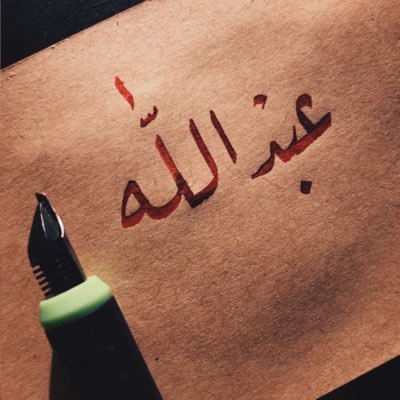 عبد اللّٰه